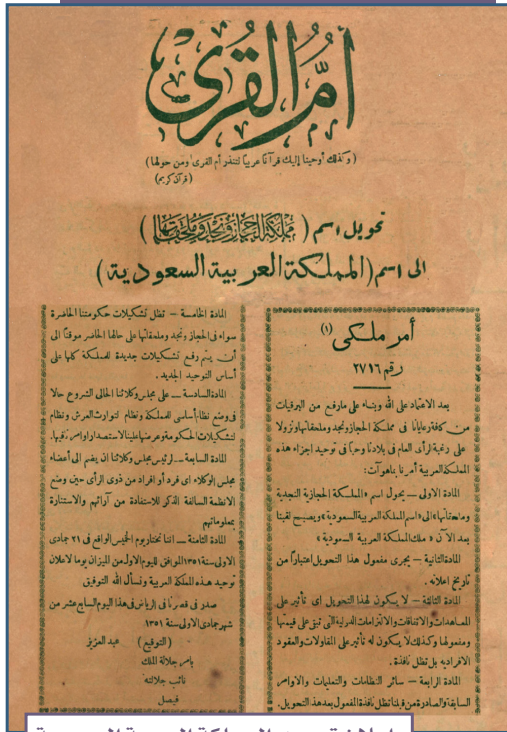 أم القرى
( وكذلك أوحينا إليك قرآناً عربياً لتنذر أم القرى ومن حولها )
( قرآن كريم )
تحويل اسم ( مملكة الحجاز ونجد وملحقاتها )
الى اسم ( المملكة العربية السعودية )
أمر ملكى (١)
رقم ٢٧١٦
بعد الاعتماد على الله وبناء على مارفع من البرقيات
من كافة رعايانا فى مملكة الحجاز ونجد وملحقاتها ونزولا
على رغبة الرأى العام فى بلادنا وحباً فى توحيد اجزاء هذه
المملكة العربية أمرنا بما هو آت :
المادة الاولى — يحول اسم « المملكة الحجازية النجدية
وملحقاتها » الى « اسم المملكة العربية السعودية » ويصبح لقبنا
بعد الآن « ملك المملكة العربية السعودية »
المادة الثانية — يجرى مفعول هذا التحويل اعتباراً من
تاريخ اعلانه .
المادة الثالثة — لا يكون لهذا التحويل اى تأثير على
المعاهدات والاتفاقات والالتزامات الدولية التى تبقى على قيمتها
ومفعولها وكذلك لا يكون له تأثير على المقاولات والعقود
الافرادية بل تظل نافذة .
المادة الرابعة — سائر النظامات والتعليمات والاوامر
السابقة والصادرة من قبلنا تظل نافذة المفعول بعد هذا التحويل .
المادة الخامسة — تظل تشكيلات حكومتنا الحاضرة
سواء فى الحجاز ونجد وملحقاتها على حالها الحاضر موقتاً الى
أن يتم وضع تشكيلات جديدة للمملكة كلها على
أساس التوحيد الجديد .
المادة السادسة — على مجلس وكلائنا الحالى الشروع حالا
فى وضع نظام أساسى للمملكة ونظام لتوارث العرش ونظام
لتشكيلات الحكومة وعرضها علينا لاستصدار اوامرنا فيها .
المادة السابعة — لرئيس مجلس وكلائنا ان يضم الى أعضاء
مجلس الوكلاء اى فرد أو افراد من ذوى الرأى حين وضع
الانظمة السالفة الذكر للاستفادة من آرائهم والاستنارة
بمعلوماتهم
المادة الثامنة — اننا نختار يوم الخميس الواقع فى ٢١ جمادى
الاولى سنة ١٣٥١ الموافق لليوم الاول من الميزان يوما لاعلان
توحيد هذه المملكة العربية ونسأل الله التوفيق
صدر فى قصرنا فى الرياض فى هذا اليوم السابع عشر من
شهر جمادى الاولى سنة ١٣٥١
( التوقيع ) عبد العزيز
بامر جلالة الملك
نائب جلالته
فيصل